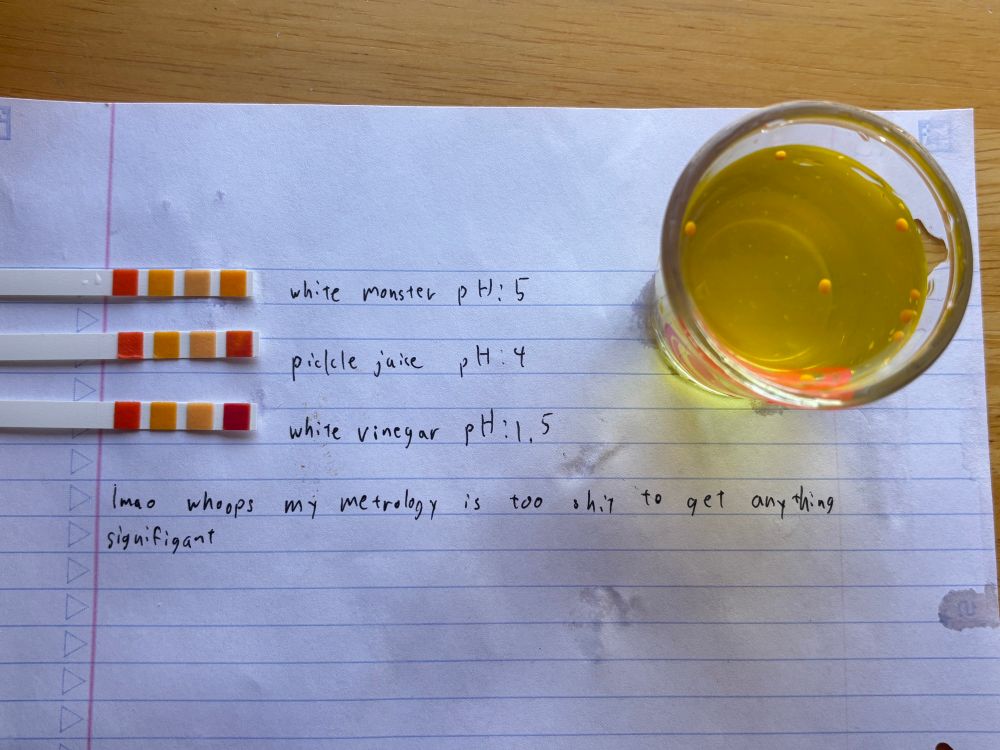 white monster pH: 5
pickle juice pH: 4
white vinegar pH: 1.5
lmao whoops my metrology is too shit to get anything
signifigant